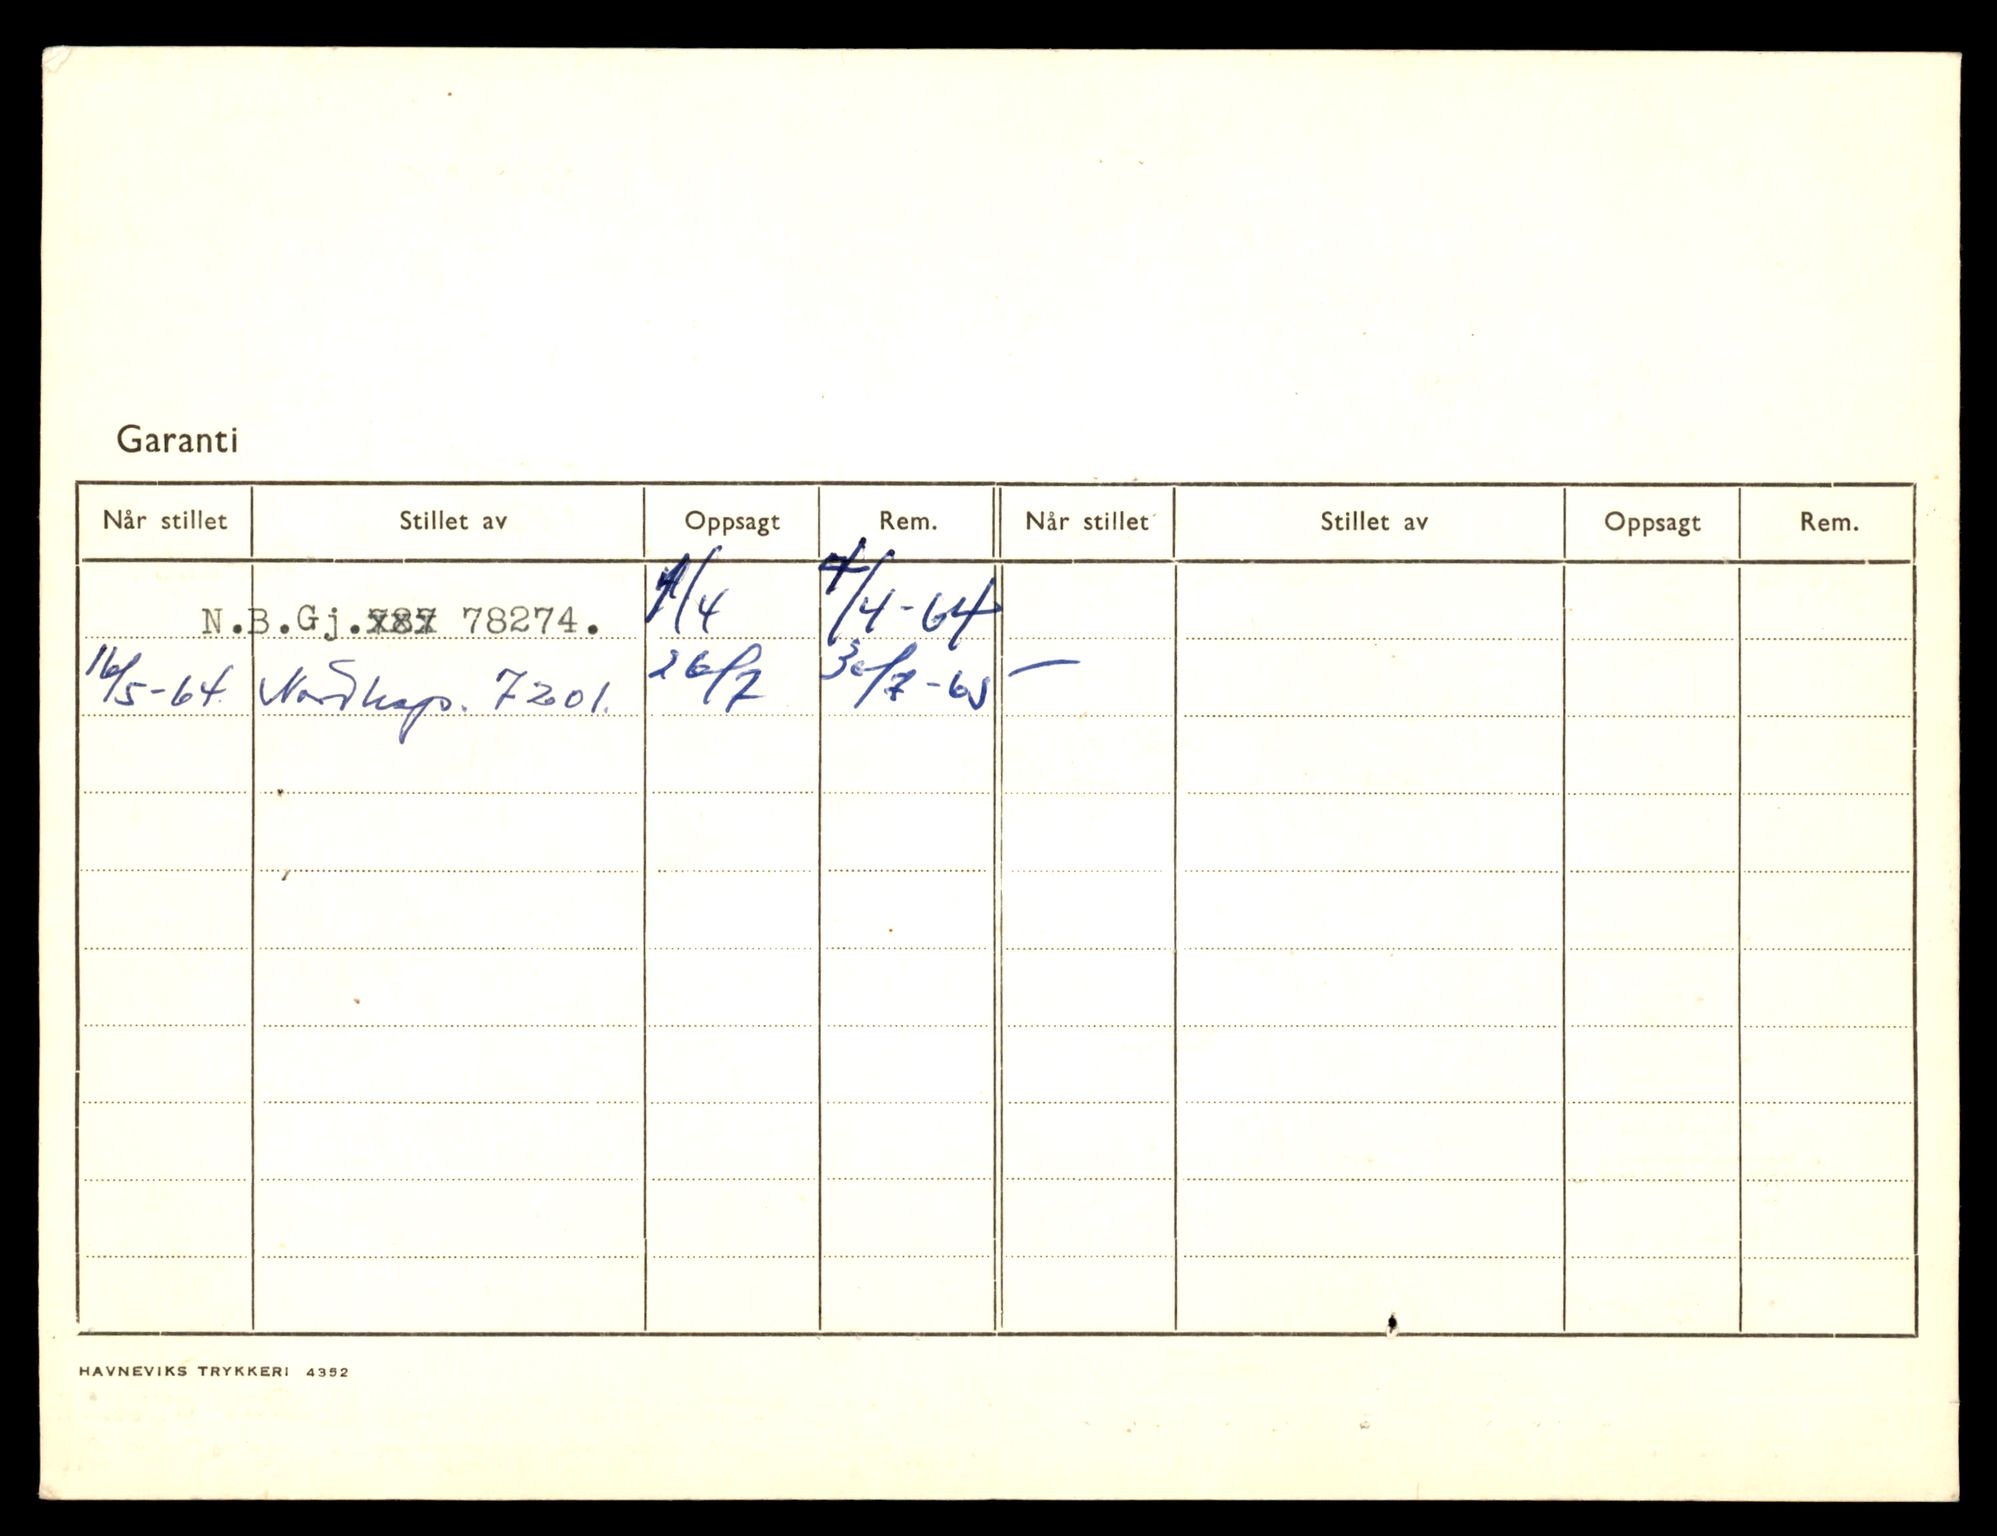 Garanti
Når stillet Stillet av Oppsagt Rem. Når stillet Stillet av Oppsagt Rem.
N.B.Gj. 78274. 1/4 7/4-64
16/5-64 Nordkap. 7201. 26/7 30/7-65 —
HAVNEVIKS TRYKKERI 4352